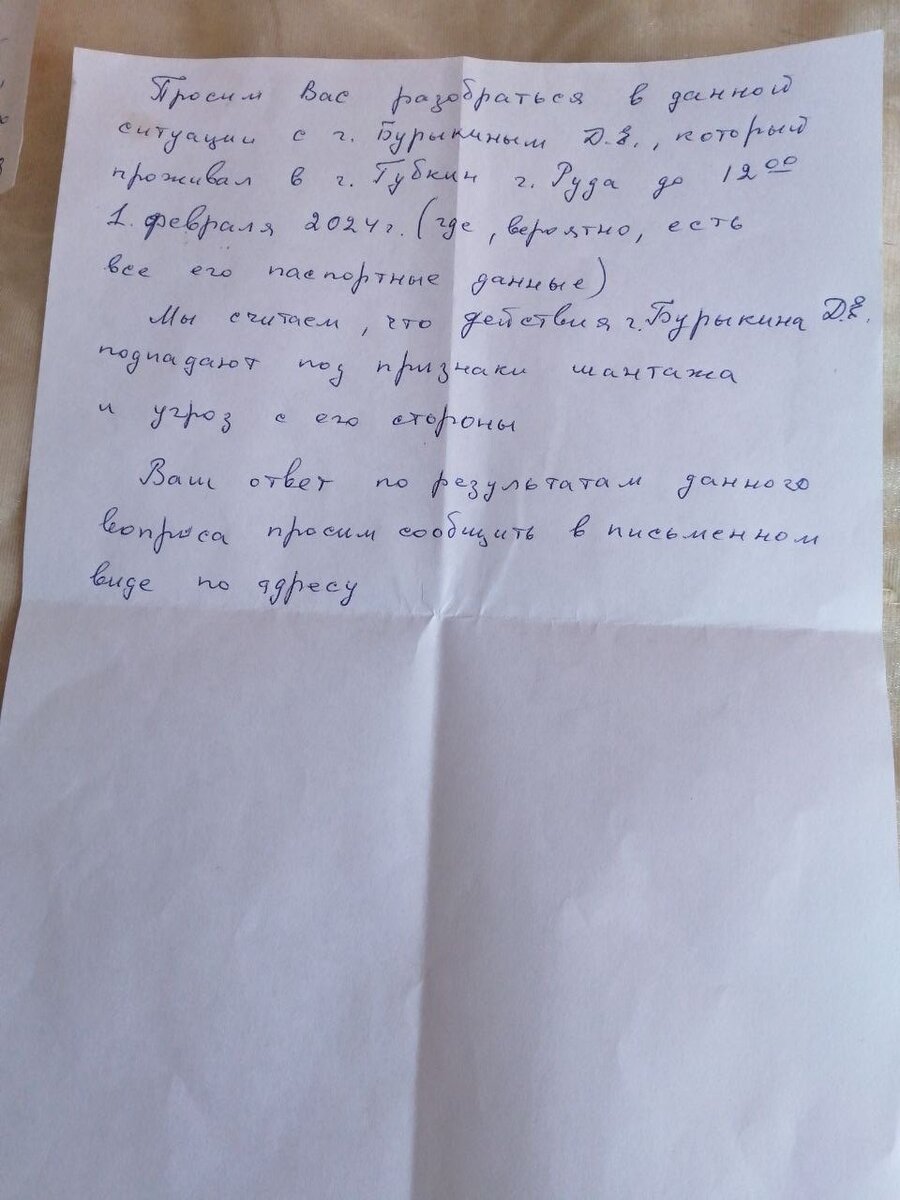 Просим Вас разобраться в данной
ситуации с г. Бурыкиным Д.Е., который
проживал в г. Губкин г. Руда до 12 00
1. февраля 2024г. (где, вероятно, есть
все его паспортные данные)
Мы считаем, что действия г. Бурыкина Д.Е.
подпадают под признаки шантажа
и угроз с его стороны
Ваш ответ по результатам данного
вопроса просим сообщить в письменном
виде по адресу